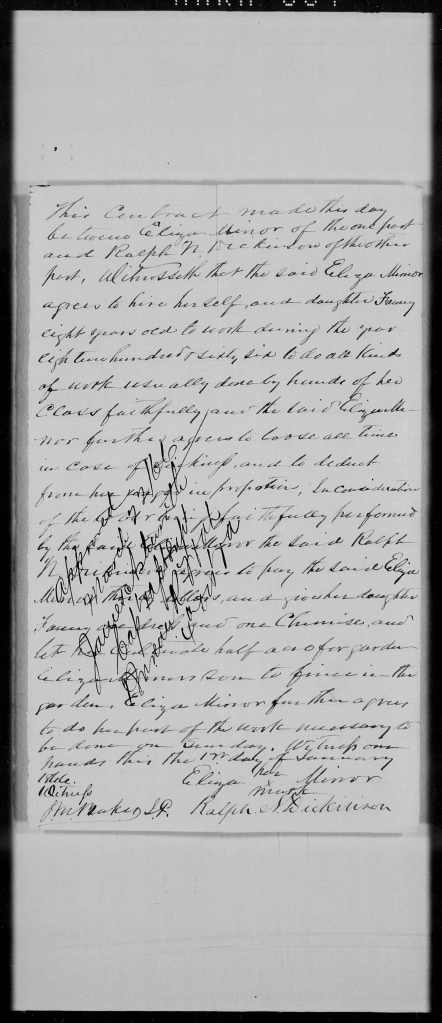 This Contract made this day
between Eliza Minor of the one part
and Ralph N Dickinson of the other
part, Witnesseth that the said Eliza Minor
agrees to hire herself, and daughter Fanny
eight years old to work during the year
eighteen hundred & sixty six to do all kinds
of work usually done by hands of her
Class faithfully, and the said Eliza Mi-
nor further agrees to loose all time
in case of and to deduct
from her in propotion, In Consideration
of the faithfully performed
by the said Minor the said Ralph
N agrees to pay the said Eliza
and give her daughter
Fanny one and one Chemise, and
let half acre for garden
Eliza Minors Son to fence in the
garden. Eliza Minor further agrees
to do her part of the work necessary to
be done on Sunday. Witness our
hands this the 1st day of January
1866.
Eliza her mark Minor
Witness
Ralph N Dickinson
approved